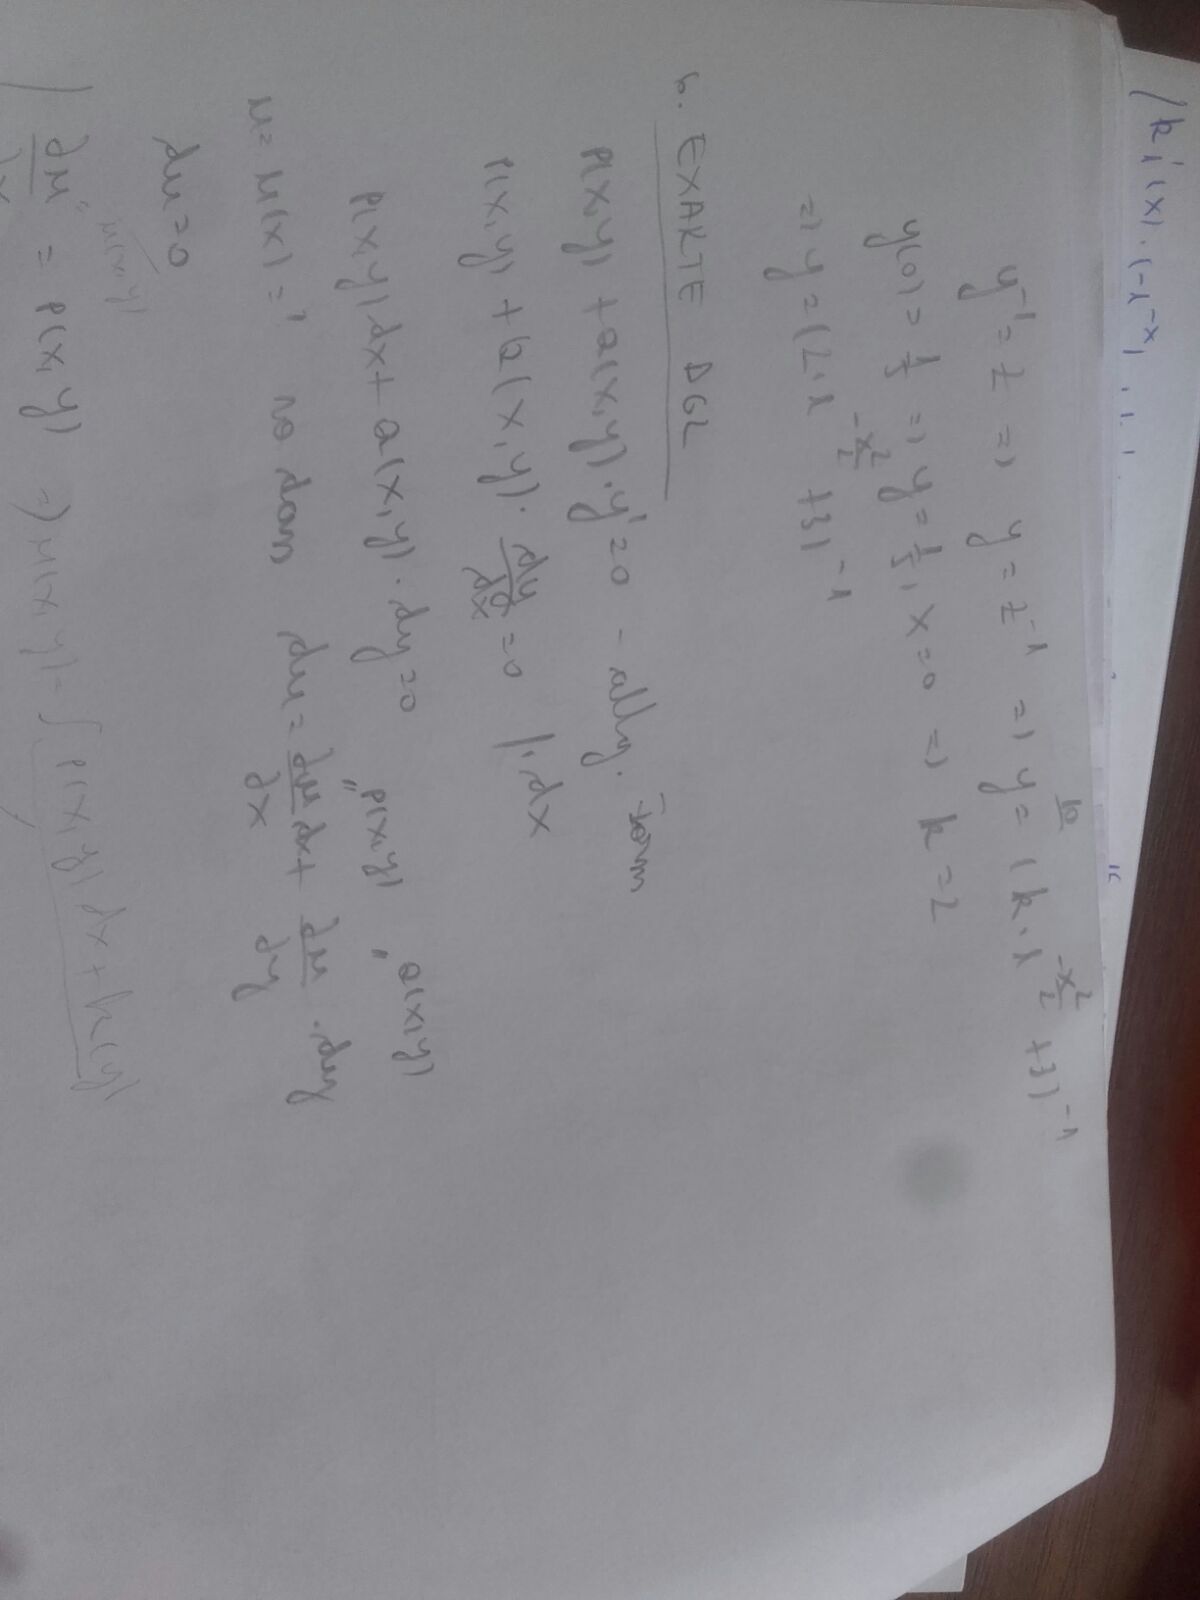 k'(x)·(-e^-x)
10
y^-1 = z => y = z^-1 => y = (k·e^(-x²/2) +3)^-1
y(0) = 1/5 => y = 1/5, x=0 => k = 2
=> y = (2·e^(-x²/2) +3)^-1
6. EXAKTE DGL
P(x,y) + Q(x,y)·y' = 0 - allg. Form
P(x,y) + Q(x,y)· dy/dx = 0 /·dx
P(x,y)dx + Q(x,y)·dy = 0
P(x,y) Q(x,y)
u = u(x) = ? so dass du = ∂u/∂x dx + ∂u/∂y · dy
du = 0
u(x,y)
∂u/∂x = P(x,y) => u(x,y) = ∫P(x,y)dx + k(y)